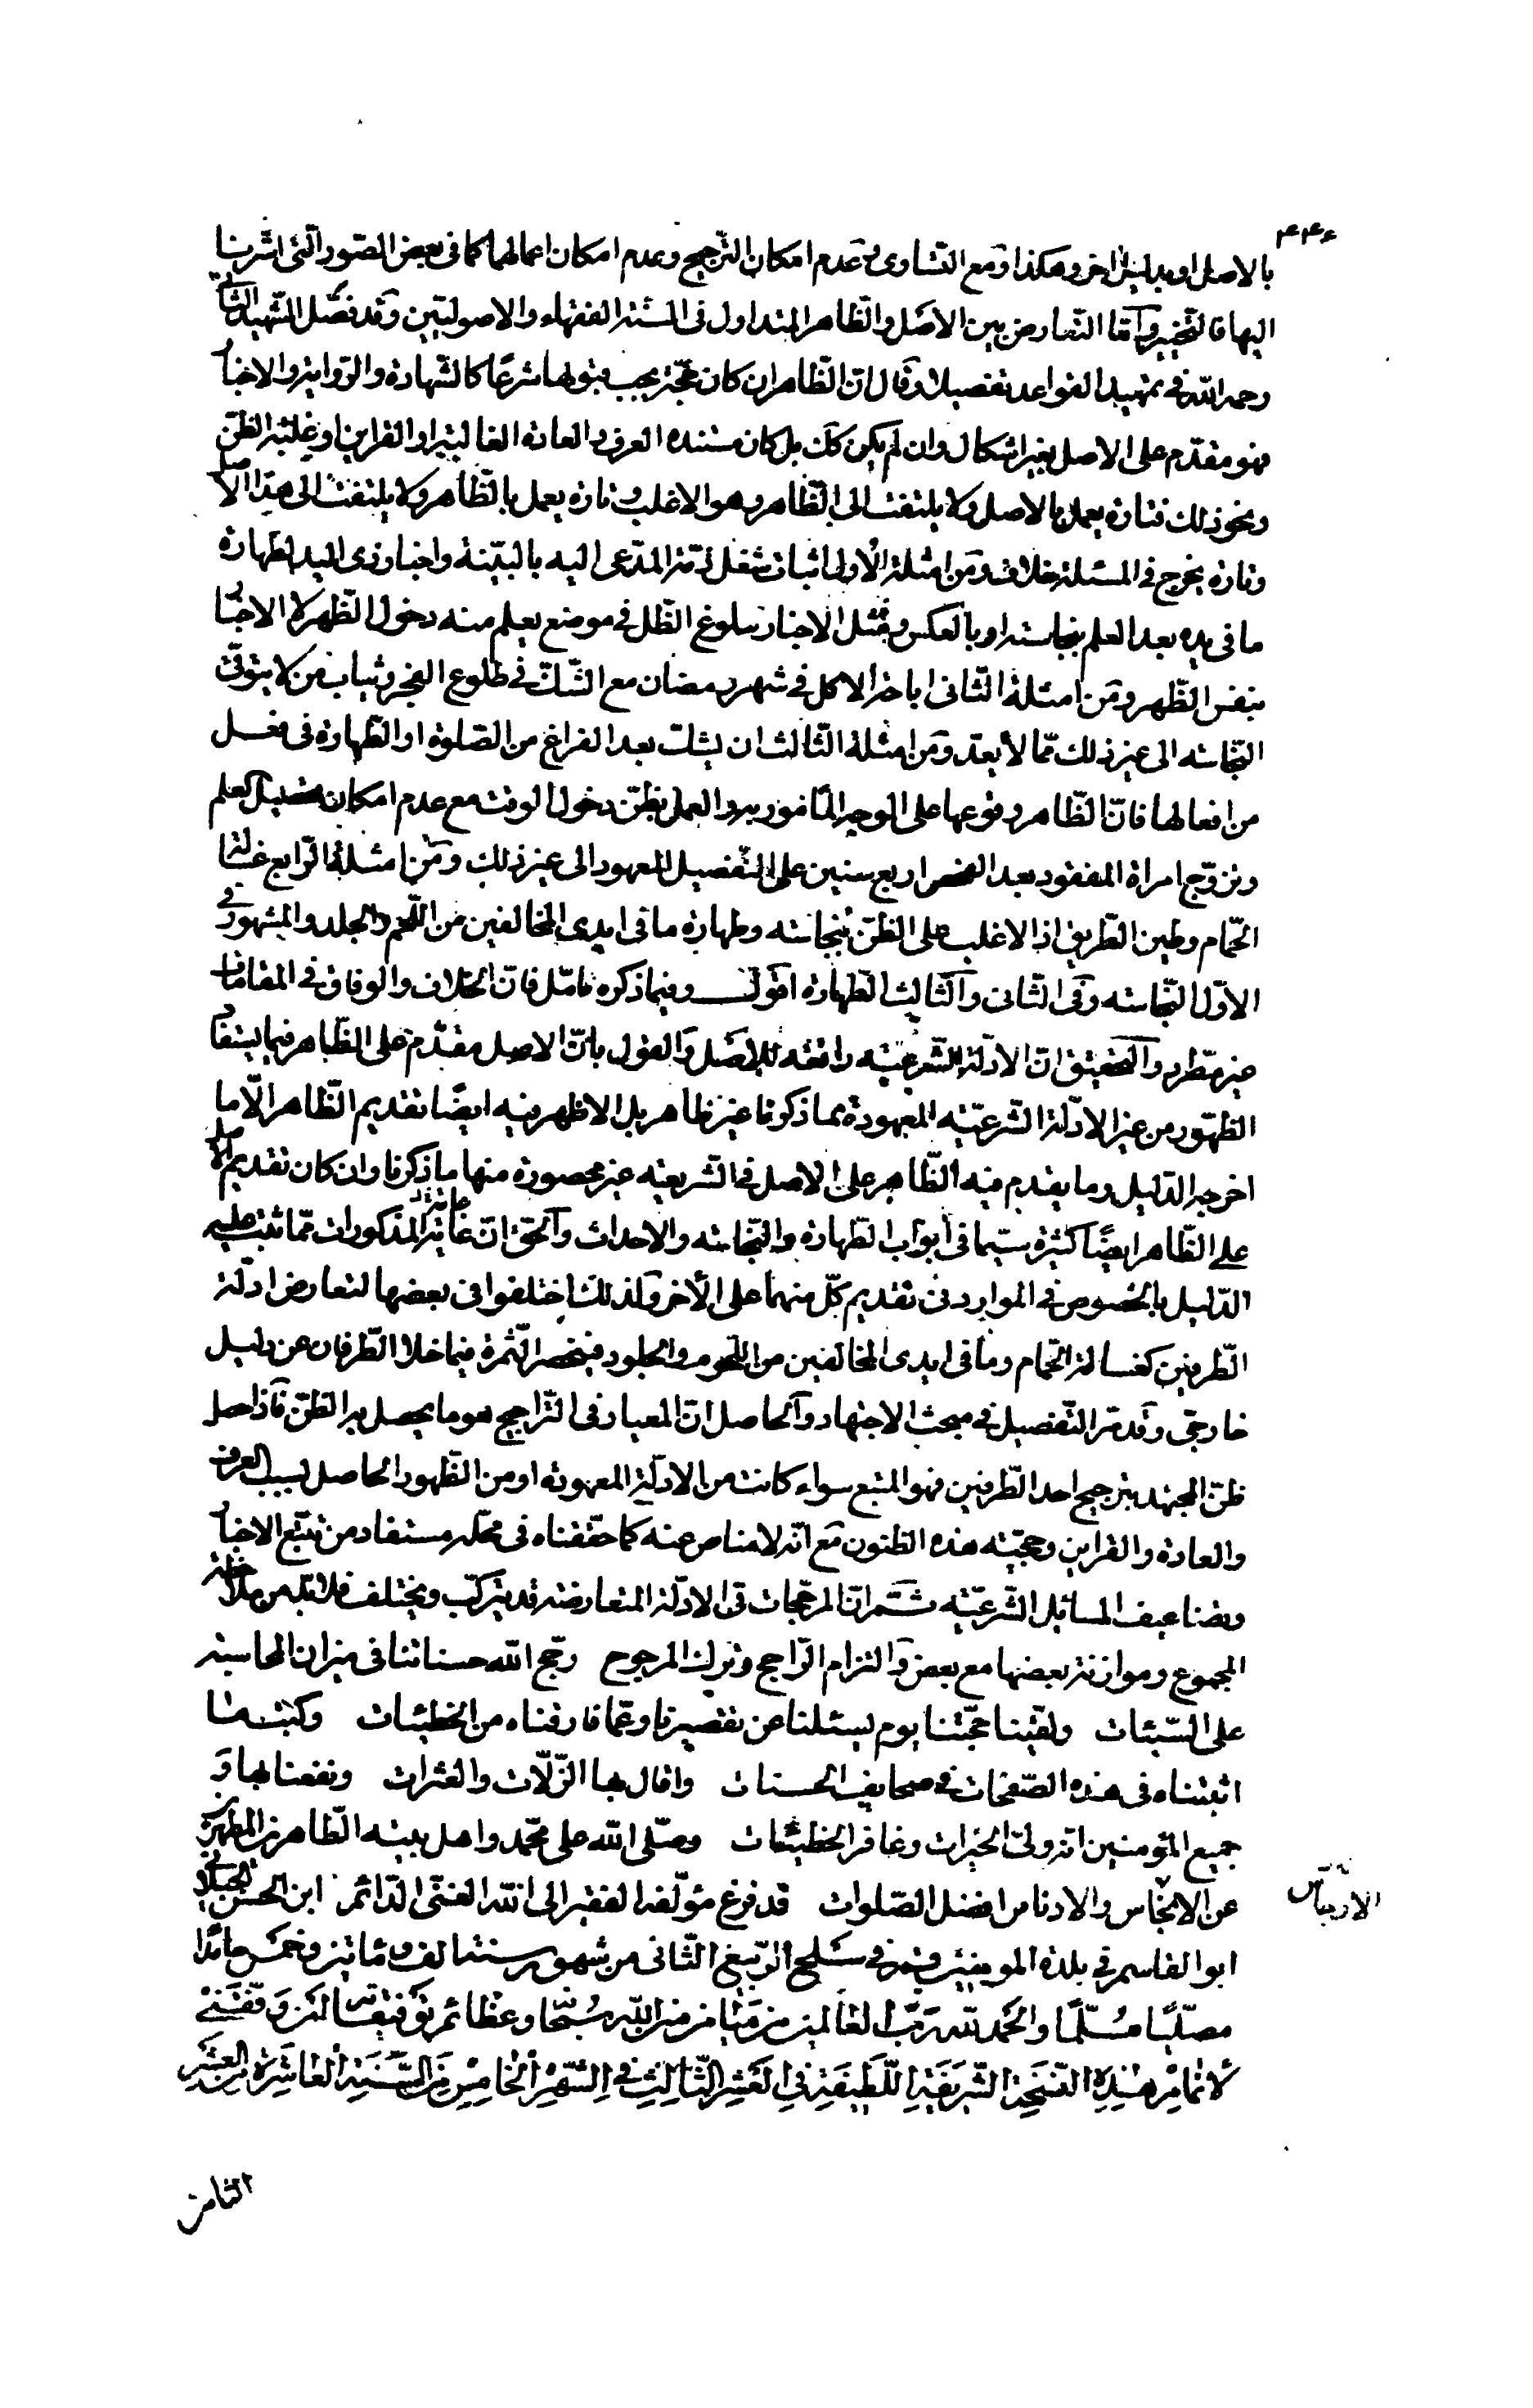 ۴۴۶
بالاصل او بدليل اخر وهكذا ومع التساوى وعدم امكان الترجيح وعدم امكان اعمالهما كما فى بعض الصور التى اشرنا
اليها فالتخيير وامّا التّعارض بين الاصل والظّاهر المتداول فى السنة الفقهاء والاصوليّين وقد فصّل الشّهيد الثانى
رحمه الله فى تمهيد القواعد تفصيلا وقال انّ الظّاهر ان كان حجّة يجب قبولها شرعًا كالشّهادة والرّواية والاخبار
فهو مقدّم على الاصل بغير اشكال وان لم يكن كك بل كان مستنده العرف والعادة الغالبة او القراين او غلبة الظنّ
ونحو ذلك فتارة يعمل بالاصل ولا يلتفت الى الظّاهر وهو الاغلب وتارة يعمل بالظّاهر ولا يلتفت الى هذا الاصل
وتارة يخرج فى المسئلة خلاف ومن امثلة الاول اثبات شغل ذمّة المدّعى اليه بالبيّنة واخبار ذى اليد لطهارة
ما فى يده بعد العلم بنجاسته او بالعكس ومثل الاخبار ببلوغ الظّل فى موضع يعلم منه دخول الظّهر لا الاخبار
بنفس الظّهر ومن امثلة الثّانى اباحة الاكل فى شهر رمضان مع الشّكّ فى طلوع الفجر وثياب من لا يتوقّى
النّجاسة الى غير ذلك ممّا لا يعدّ ومن امثلة الثّالث ان يشكّ بعد الفراغ من الصّلوة او الطّهارة فى فعل
من افعالها فانّ الظّاهر وقوعها على الوجه المأمور به والعمل بظنّ دخول الوقت مع عدم امكان تحصيل العلم
وتزوّج امراة المفقود بعد الفحص اربع سنين على التّفصيل المعهود الى غير ذلك ومن امثلة الرّابع غسالة
الحمّام وطين الطّريق اذ الاغلب على الظنّ بنجاسته وطهارة ما فى ايدى المخالفين من اللّحم والجلد والمشهور فى
الاوّل النّجاسة وفى الثّانى والثّالث الطّهارة اقول وفيما ذكره تامّل فانّ الخلاف والوفاق فى المقامات
غير مطّرد والتّحقيق انّ الادلّة الشّرعيّة رافعة للاصل والقول بانّ الاصل مقدّم على الظّاهر فيما يستفاد
الظهور من غير الادلّة الشّرعيّة المعهودة بما ذكرنا غير ظاهر بل الاظهر فيه ايضًا تقديم الظّاهر الّا ما
اخرجه الدّليل وما يقدم فيه الظّاهر على الاصل فى الشّريعة غير محصورة منها ما ذكرنا وان كان تقديم الاصل
على الظّاهر ايضًا كثيرة سيّما فى ابواب الطّهارة والنّجاسة والاحداث والحقّ انّ غاية المذكورات ممّا ثبت عليه
الدّليل بالخصوص فى الموارد فى تقديم كلّ منهما على الأخر ولذلك اختلفوا فى بعضها لتعارض ادلّة
الطّرفين كغسالة الحمّام وما فى ايدى المخالفين من اللّحوم والجلود فينحصر الثّمرة فيما خلا الطّرفان عن دليل
خارجى وقد مرّ التّفصيل فى مبحث الاجتهاد والحاصل انّ المعيار فى التّراجيح هو ما يحصل به الظنّ فاذا حصل
ظنّ المجتهد بترجيح احد الطّرفين فهو المتبع سواء كانت من الادلّة المعهودة او من الظّهور الحاصل بسبب العرف
والعادة والقراين وحجيّة هذه الظنون مع انّه لا مناص عنه كما حقّقناه فى محلّه مستفاد من تتبّع الاخبار
وتضاعيف المسائل الشّرعيّة ثمّ انّ المرجّحات فى الادلّة المتعارضة قد يتركّب ويختلف فلا بدّ من ملاحظة
المجموع وموازنة بعضها مع بعض والتزام الرّاجح وترك المرجوح رجّح الله حسناتنا فى ميزان المحاسبة
على السّيئات ولقّينا حجّتنا يوم يسئلنا عن تقصيرنا وعمّا قارفناه من الخطيئات وكتب لنا
اثبتناه فى هذه الصّفحات فى صحايف الحسنات واقال بها الزّلّات والعثرات ونفعنا بها و
جميع المؤمنين انه ولىّ الخيرات وغافر الخطيئات وصلّى الله على محمّد واهل بيته الطّاهرين المطهرين
عن الانجاس والادناس افضل الصّلوات قد فرغ مؤلّفه الفقير الى الله الغنىّ الدّائم ابن الحسن الجيلانى
الارجاس
ابو القاسم فى بلدة المومنين قم فى سلخ الرّبيع الثّانى من شهور سنة الف ومائتين وخمس حامدًا
مصلّيًا مسلّمًا والحمد لله ربّ العالمين من الله سبحانه وعظائم توفيقاته لمن وفّقنى
لاتمام هذه النّسخة الشّريفة اللّطيفة فى العشر الثّالث فى الشّهر الخامس من السّنة العاشرة من العشر
الثامن